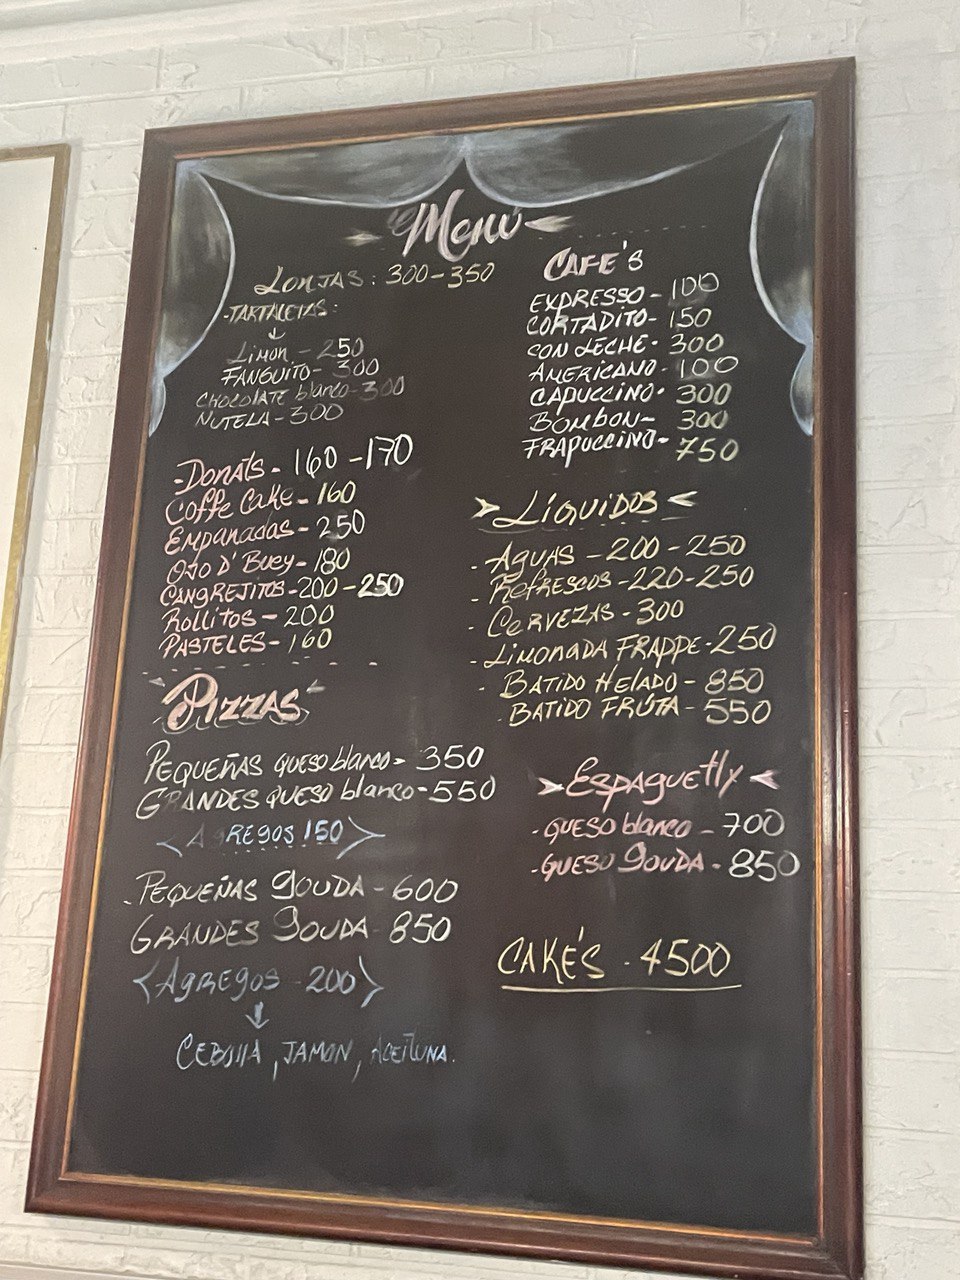 Menú
Lonjas: 300-350
-Tartaletas:
Limon - 250
Fanguito - 300
Chocolate blanco - 300
Nutela - 300
-Donats - 160 - 170
Coffe Cake - 160
Empanadas - 250
Ojo D' Buey - 180
Cangrejitos - 200 - 250
Rollitos - 200
Pasteles - 160
Pizzas
Pequeñas queso blanco - 350
Grandes queso blanco - 550
<Agregos 150>
-Pequeñas Gouda - 600
Grandes Gouda - 850
<Agregos - 200>
Cebolla, Jamon, Aceituna.
Cafe's
Expresso - 100
Cortadito - 150
Con Leche - 300
Americano - 100
Capuccino - 300
Bombon - 300
Frapuccino - 750
Liquidos
- Aguas - 200 - 250
- Refrescos - 220 - 250
- Cervezas - 300
- Limonada Frappe - 250
- Batido Helado - 850
- Batido Fruta - 550
Espaguetty
- Queso blanco - 700
- Queso Gouda - 850
Cake's - 4500